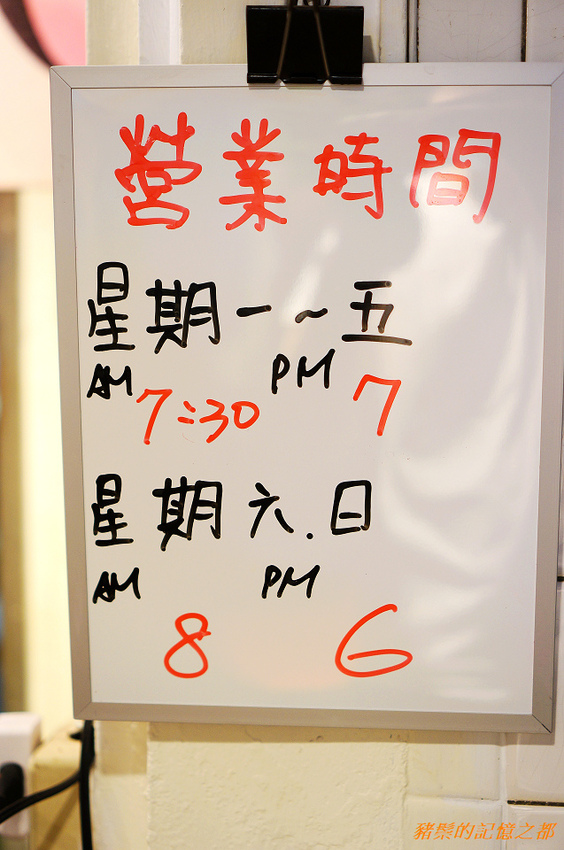 營業時間
星期一~五
AM 7:30 PM 7
星期六.日
AM 8 PM 6
豬鬃的記憶之都